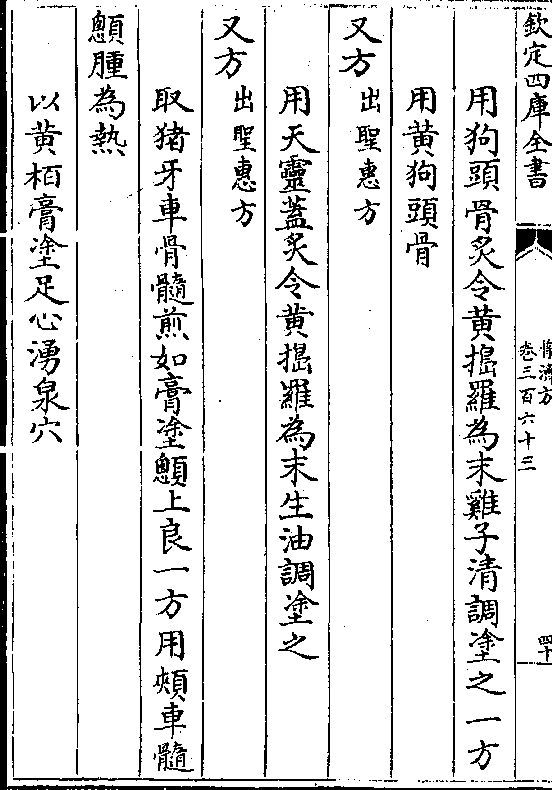 欽定四庫全書
普濟方
卷三百六十三
四十
用狗頭骨炙令黄搗羅為末雞子清調塗之一方
用黄狗頭骨
又方 出聖惠方
用天靈蓋炙令黄搗羅為末生油調塗之
又方 出聖惠方
取猪牙車骨髓煎如膏塗顖上良一方用頰車髓
顖腫為熱
以黄栢膏塗足心湧泉穴